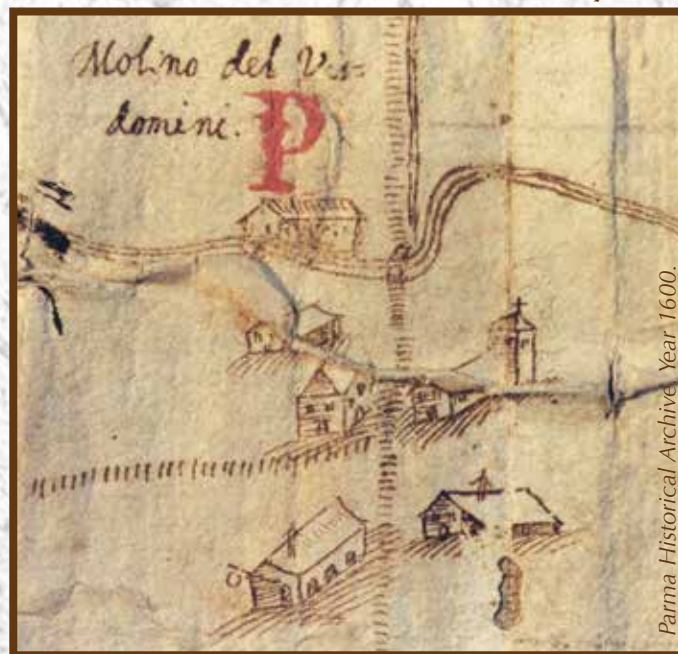 Molino del Vi=
domini.
P
Parma Historical Archive Year 1600.